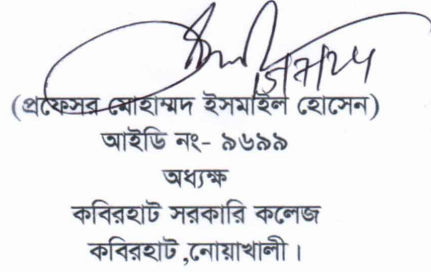 (প্রফেসর মোহাম্মদ ইসমাইল হোসেন)
আইডি নং- ৯৬৯৯
অধ্যক্ষ
কবিরহাট সরকারি কলেজ
কবিরহাট ,নোয়াখালী।